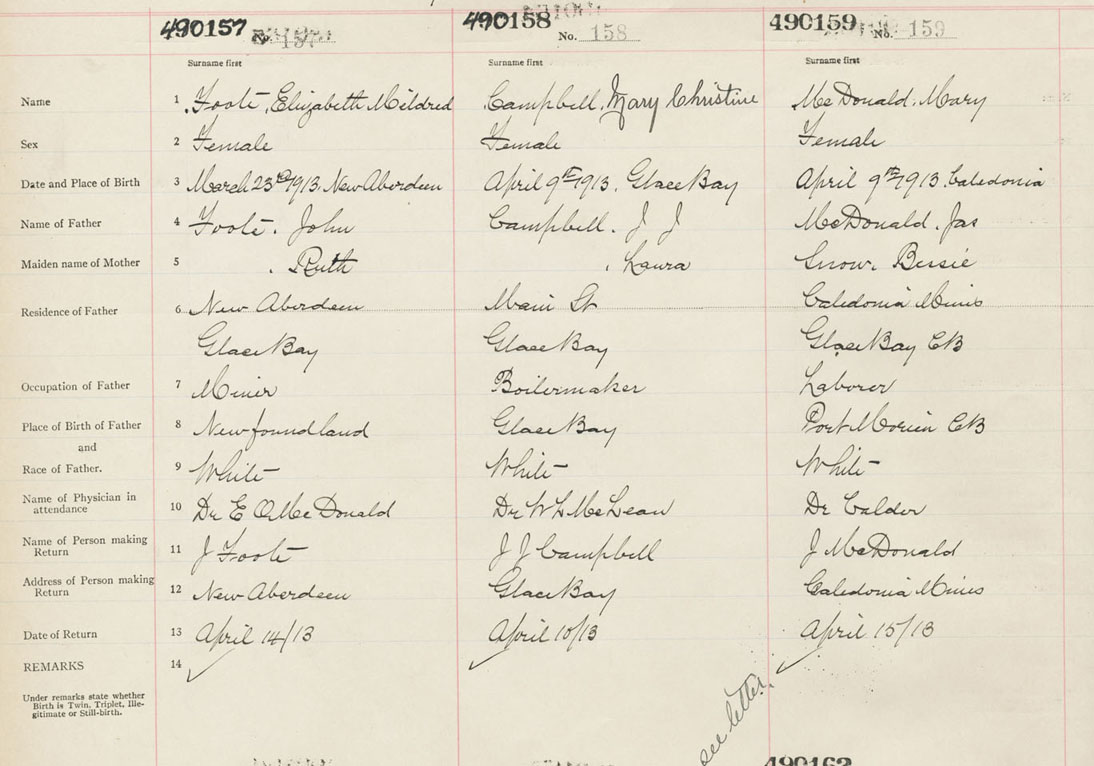 490157 490158 490159
No. 157 No. 158 No. 159
Surname first Surname first Surname first
Name 1 Foote, Elizabeth Mildred Campbell, Mary Christine McDonald, Mary
Sex 2 Female Female Female
Date and Place of Birth 3 March 23rd 1913. New Aberdeen April 9th 1913. Glace Bay April 9th 1913. Caledonia
Name of Father 4 Foote. John Campbell. J J McDonald. Jas
Maiden name of Mother 5 . Ruth . Laura Snow. Bessie
Residence of Father 6 New Aberdeen Main St Caledonia Mines
Glace Bay Glace Bay Glace Bay CB
Occupation of Father 7 Miner Boilermaker Laborer
Place of Birth of Father 8 Newfoundland Glace Bay Port Morien CB
and
Race of Father. 9 White White White
Name of Physician in
attendance 10 Dr E O McDonald Dr W L McLean Dr Calder
Name of Person making
Return 11 J Foote J J Campbell J McDonald
Address of Person making
Return 12 New Aberdeen Glace Bay Caledonia Mines
Date of Return 13 April 14/13 April 10/13 April 15/13
REMARKS 14
Under remarks state whether
Birth is Twin, Triplet, Ille-
gitimate or Still-birth.
see letter.
490162